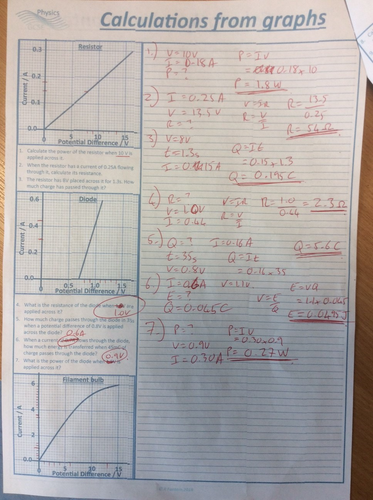 Physics
Calculations from graphs
Resistor
Current / A
0.3
0.2
0.1
0.0
0 5 10 15
Potential Difference / V
1. Calculate the power of the resistor when 10 V is
applied across it.
2. When the resistor has a current of 0.25A flowing
through it, calculate its resistance.
3. The resistor has 8V placed across it for 1.3s. How
much charge has passed through it?
Diode
Current / A
0.6
0.4
0.2
0.0
0
Potential Difference / V
4. What is the resistance of the diode when
applied across it?
1.0V
5. How much charge passes through the diode in
when a potential difference of 0.8V is applied
across the diode?
0.6A
6. When a current flows through the diode,
how much energy is transferred when
charge passes through the diode?
0.9V
7. What is the power of the diode when
applied across it?
Filament bulb
Current / A
6
4
2
0.0
0 5 10 15
Potential Difference / V
1.) V = 10V P = IV
I = 0.18A = 0.18 x 10
P = ? P = 1.8W
2.) I = 0.25A V = IR R = 13.5
V = 13.5V R = V/I 0.25
R = ? R = 54Ω
3) V = 8V
t = 1.3s Q = It
I = 0.15A = 0.15 x 1.3
Q = 0.195C
4) R = ? V = IR R = 1.0 = 2.3Ω
V = 1.0V R = V/I 0.44
I = 0.44
5.) Q = ? I = 0.16A Q = 5.6C
t = 35s Q = It
V = 0.8V = 0.16 x 35
6.) I = 0.6A V = 1.1V E = VQ
E = ? V = E/Q = 1.1 x 0.045
Q = 0.045C E = 0.0495J
7.) P = ? P = IV
V = 0.9V = 0.30 x 0.9
I = 0.30A P = 0.27W